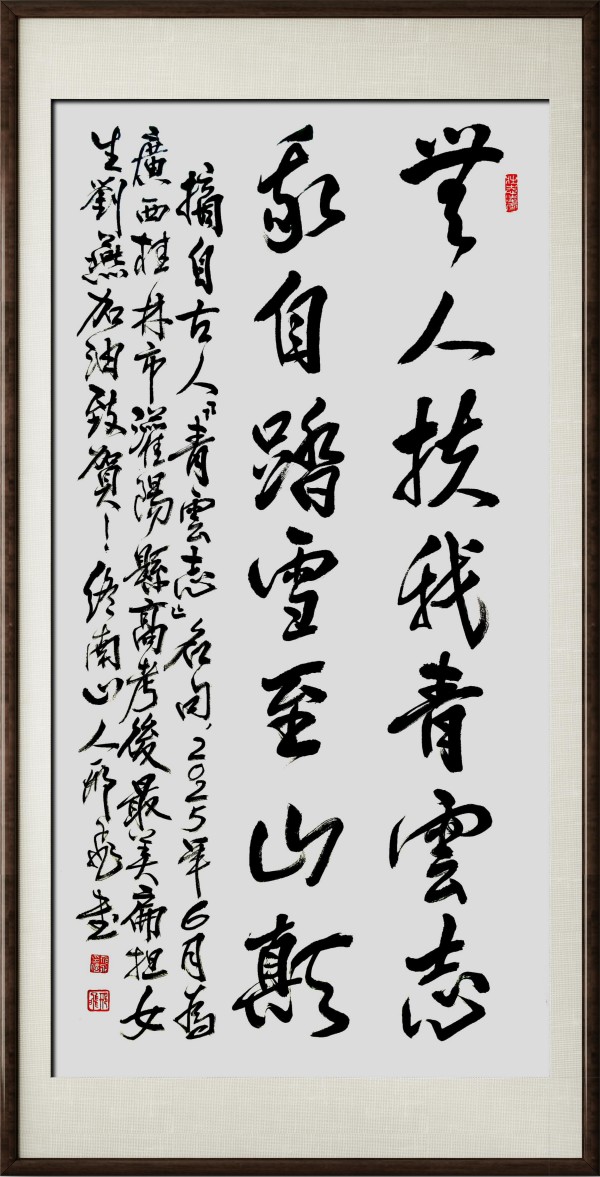 無人扶我青雲志
我自踏雪至山巔
摘自古人『青雲志』名句，2025年6月為
廣西桂林市灌陽縣高考後最美扁担女
生劉燕加油致賀！終南山人邢飛書